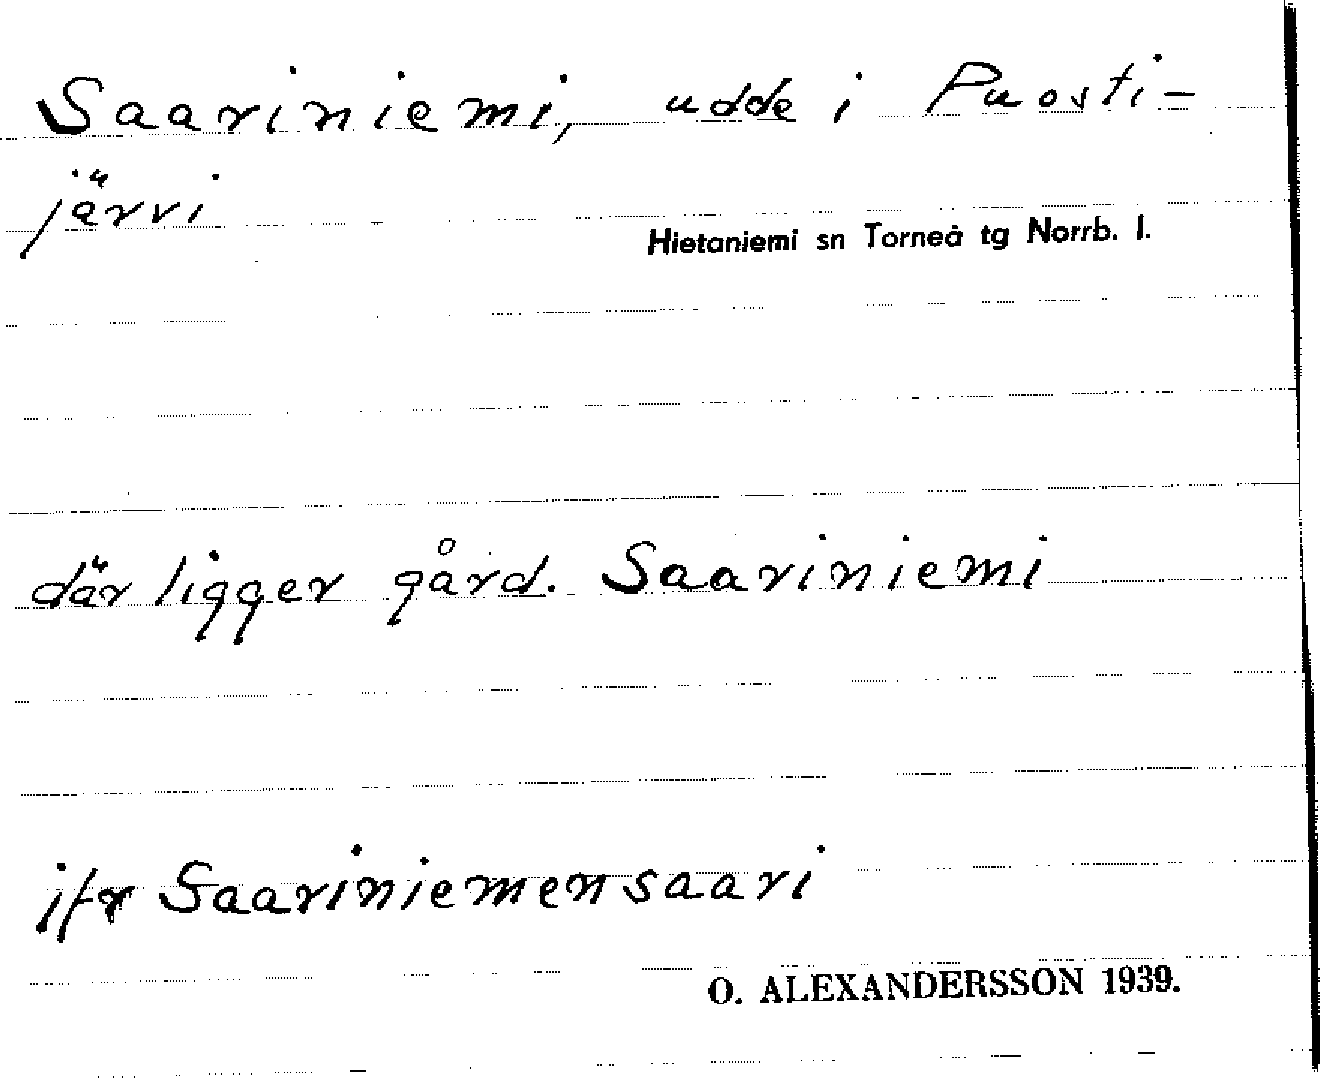 Saariniemi, udde i Puosti-
järvi
Hietaniemi sn Torneå tg Norrb. l.
där ligger gård. Saariniemi
jfr Saariniemensaari
O. ALEXANDERSSON 1939.